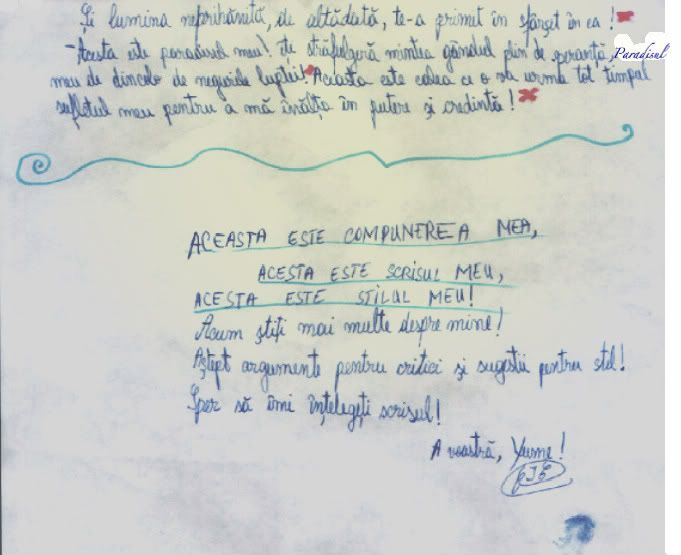 Și lumina neprihănită, de altădată, te-a primit în sfârșet în ea!
-Acesta este paradisul meu! Îți străfulgeră mintea gândul plin de speranță,
Paradisul
meu de dincolo de negurile luptei! Aceasta este calea ce o va urma tot timpul
sufletul meu pentru a mă înălța în putere și credință!
ACEASTA ESTE COMPUNEREA MEA,
ACESTA ESTE SCRISUL MEU,
ACESTA ESTE STILUL MEU!
Acum știți mai multe despre mine!
Aștept argumente pentru critici și sugestii pentru stil!
Sper să îmi înțelegeți scrisul!
A voastră, Yume!